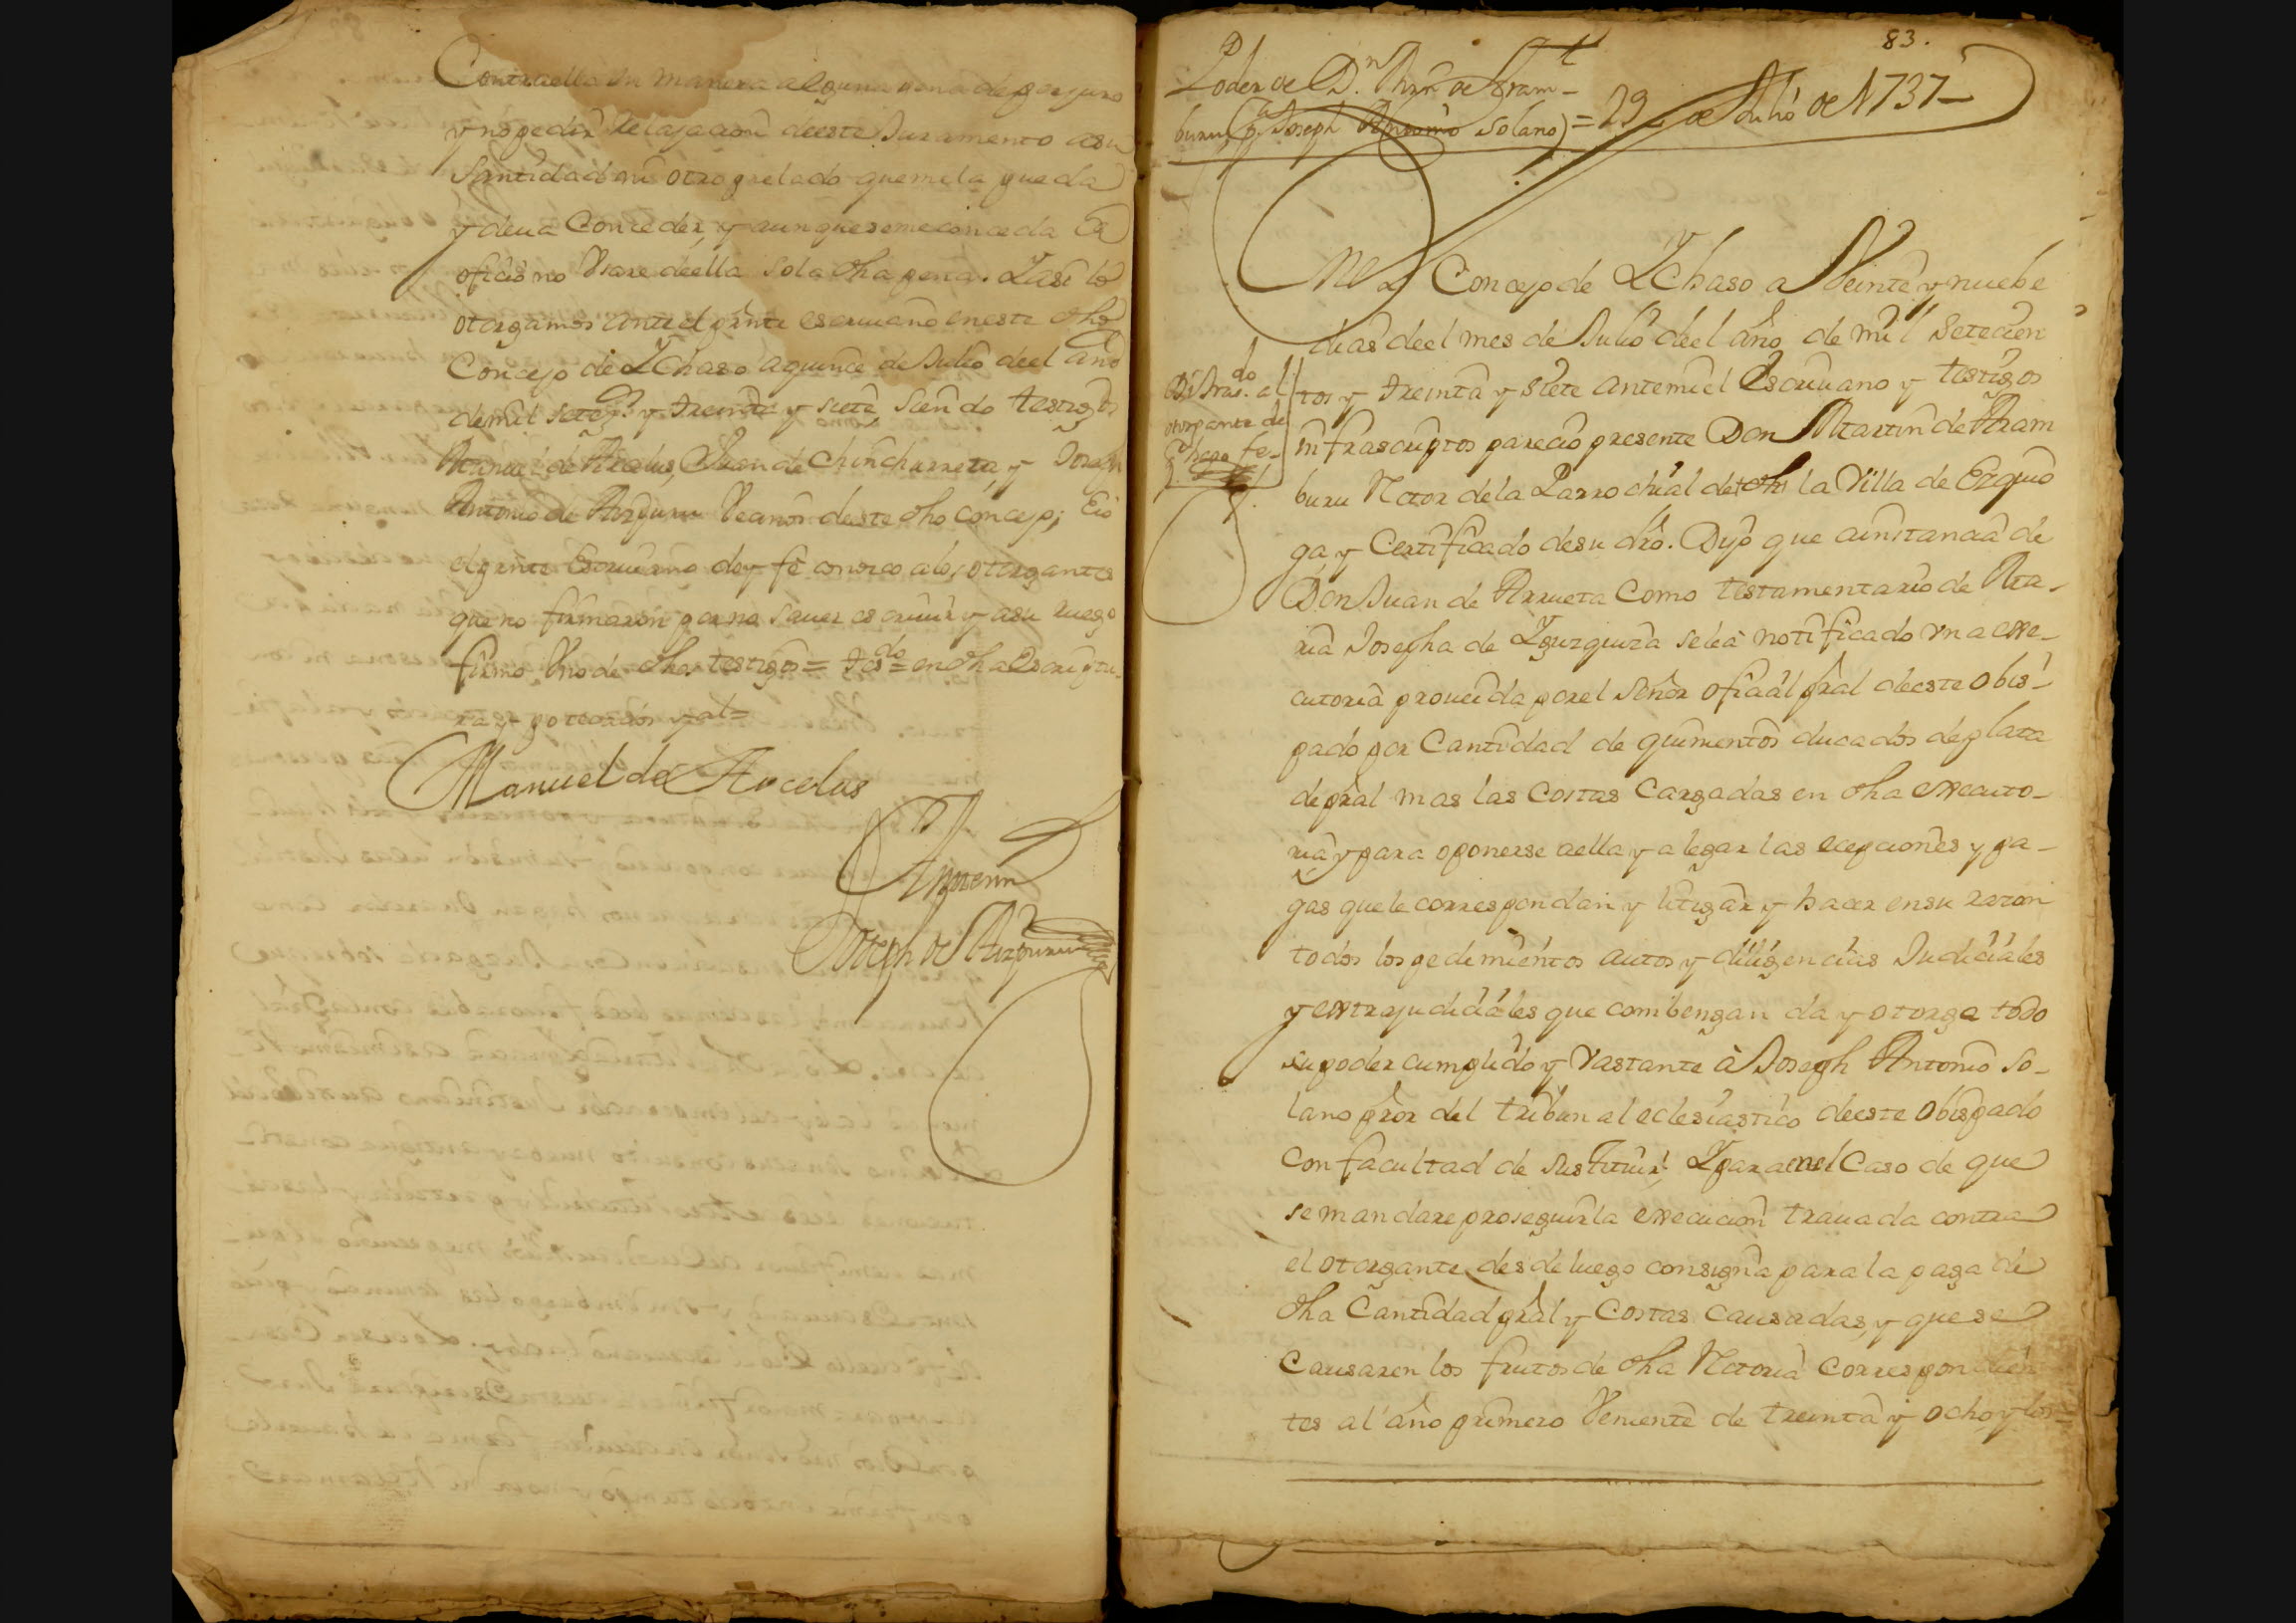 Contra ella en manera alguna pena de perjuro
y no pedir relajacion deeste Juramento a su
Santidad ni otro prelado que me la pueda
y deua Conceder, y aunque se me conceda Ex
oficio no Vsare deella sola dha pena. Y asi lo
otorgamos ante el prnte escriuano en este dho
Concejo de Ychaso a quince de Julio deel año
de mil setezs y treinta y siete siendo testigos
Manuel de Arcelus, Juan de Chinchurreta, y Joseph
Antonio de Aizpuru Vecinos deeste dho concejo; E io
el prnte Escriuano doy fe conozco a los otorgantes
que no firmaron por no sauer escriuir y a su ruego
firmo Vno de dhos testigos = tesdo = en dha Escriptu-
ra y
Manuel de Arcelus
Antemi
Joseph de Aizpuru
83.
Poder de Dn Mrn de Aram-
buru, (pa Joseph Antonio Solano) = 29 de Julio de 1737-
N el Concejo de Ychaso a Veinte y nuebe
dias deel mes de Julio deel año de mil setecien
tos y treinta y siete ante mi el Escriuano y testigos
infrascriptos parecio presente Don Martin de Aram
buru Retor de la Parrochial de dha la Villa de Ezquio
ga y Certificado de su dro. Dijo que a instancia de
Don Juan de Arrueta Como testamentario de Ma-
ria Josepha de Yzuzquiza se le a notificado vna exe-
cutoria proueida por el señor oficial pral deeste obis-
pado por Cantidad de quinientos ducados de plata
de pral mas las costas Cargadas en dha executo-
ria y para oponerse aella y alegar las ecepciones y pa-
gas que le correspondan y litigar y hacer en su razon
todos los pedimientos autos y diligencias Judiciales
y extrajudiciales que combengan da y otorga todo
su poder cumplido y Vastante à Joseph Antonio So-
lano pror del tribunal eclesiastico deeste obispado
con facultad de sustituir. Y para en el Caso de que
se mandare proseguir la execucion trauada contra
el otorgante desde luego consigna para la paga de
dha Cantidad pral y Costas causadas, y que se
Causaren los frutos de dha Retoria Correspondien
tes al año primero Veniente de treinta y ocho y los